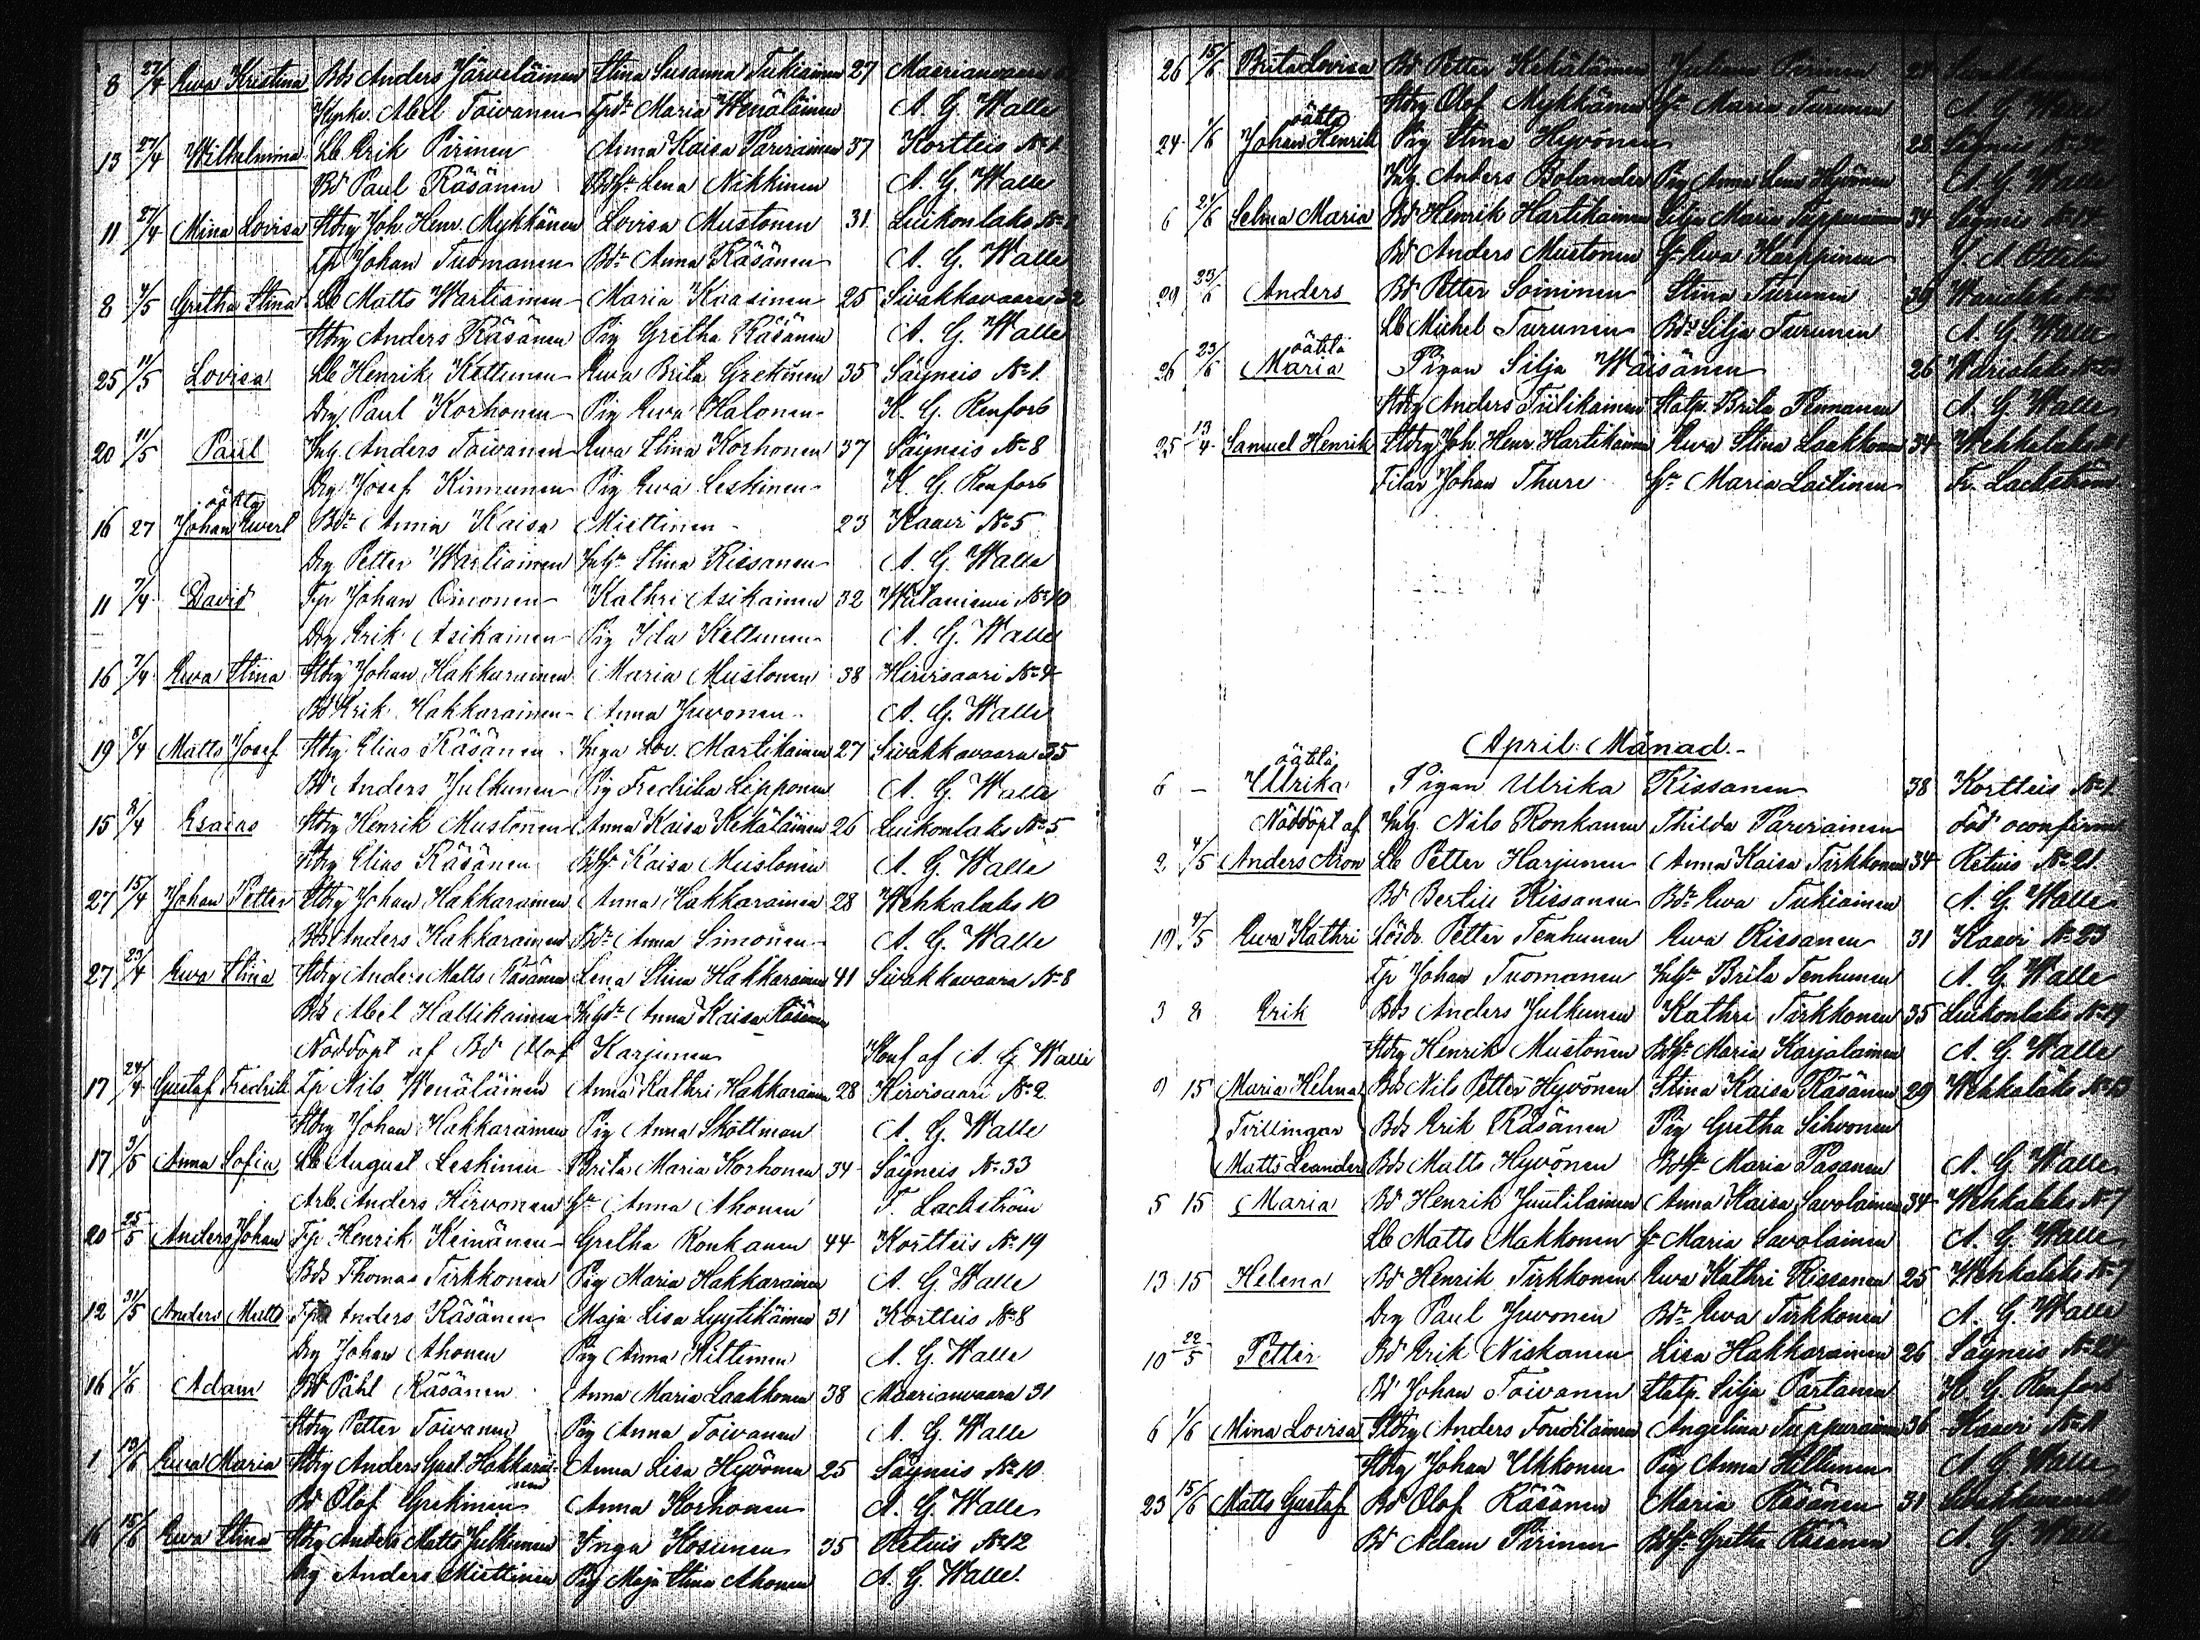 8 27/4 Ewa Kristina Bds Anders Järveläinen Stina Susanna Tukiainen 27 Maarianvaara
Abel Toivanen Maria Wenäläinen A. G. Walle
13 27/4 Wilhelmina Lb Erik Pirinen Anna Kaisa Parviainen 37 Kortteis No 1
Bd Paul Räsänen Bdhu Lena Nikkinen A. G. Walle
11 27/4 Mina Lovisa Stdrg Joh. Henr. Mykkänen Lovisa Mustonen 31 Luikonlaks No
Tp Johan Tuomanen Bdr Anna Räsänen A. G. Walle
8 Gretha Stina Lb Matts Wartiainen Maria Kaasinen 25 Sivakkavaara 32
Stdrg Anders Räsänen Pig Gretha Räsänen A. G. Walle
25 11/5 Lovisa Lb Henrik Kettunen Ewa Brita Grekinen 35 Säyneis No 1.
Drg Paul Korhonen Pig Ewa Halonen K. G. Renfors
20 11/5 Paul Inh. Anders Toivanen Ewa Stina Korhonen 37 Säyneis No 8
Drg Josef Kinnunen Pig Ewa Leskinen K. G. Renfors
oäkta
16 27 Johan Ewert Bdr Anna Kaisa Miettinen 23 Kaavi No 5
Drg Petter Wartiainen Stina Rissanen A. G. Walle
11 7/4 David Tp Johan Oinonen Kathri Asikainen 32 Wiitaniemi No 10
Drg Erik Asikainen Pig Ida Kettunen A. G. Walle
16 7/4 Ewa Stina Stdrg Johan Hakkarainen Maria Mustonen 38 Hirvisaari No 4
Bd Erik Hakkarainen Anna Juvonen A. G. Walle
19 8/4 Matts Josef Stdrg Elias Räsänen Inga Lov. Martikainen 27 Sivakkavaara 35
Bd Anders Julkunen Pig Fredrika Lipponen A. G. Walle
15 8/4 Esaias Stdrg Henrik Mustonen Anna Kaisa Kekäläinen 26 Luikonlaks No 5
Stdrg Elias Räsänen Bdhu Kaisa Mustonen A. G. Walle
27 15/4 Johan Petter Stdrg Johan Hakkarainen Anna Hakkarainen 28 Wehkalaks 10
Bds Anders Hakkarainen Bdr Anna Simonen A. G. Walle
27 23/4 Ewa Stina Stdrg Anders Matts Räsänen Lena Stina Hakkarainen 41 Sivakkavaara No 8
Bds Abel Hallikainen Anna Kaisa Räsänen
Nöddöpt af Bd Olof Karjunen Konf af A. G. Walle
17 24/4 Gustaf Fredrik Tp Nils Wenäläinen Anna Kathri Hakkarainen 28 Hirvisaari No 2
Stdrg Johan Hakkarainen Pig Anna Skottman A. G. Walle
17 3/5 Anna Sofia Lb August Leskinen Brita Maria Korhonen 34 Säyneis No 33
Arb. Anders Hirvonen Hu Anna Ahonen F. Lackström
20 25/5 Anders Johan Tp Henrik Keinänen Gretha Ronkanen 44 Kortteis No 19
Bds Thomas Tirkkonen Pig Maria Hakkarainen A. G. Walle
12 31/5 Anders Matts Anders Räsänen Maja Lisa Lyytikäinen 31 Kortteis No 8
Drg Johan Ahonen Pig Anna Hiltunen A. G. Walle
16 1/6 Adam Bd Påhl Räsänen Anna Maria Laakkonen 38 Maarianvaara 31
Stdrg Petter Toivanen Pig Anna Toivanen A. G. Walle
1 13/6 Ewa Maria Stdrg Anders Gust Hakkarai- Anna Lisa Hyvönen 25 Säyneis No 10
nen
Bd Olof Grekinen Anna Korhonen A. G. Walle
16 15/6 Ewa Stina Stdrg Anders Matts Julkunen Inga Kosunen 35 Retuis No 12
Drg Anders Miettinen Pig Maja Stina Ahonen A. G. Walle.
26 15/6 Brita Lovisa Bd Petter Kekäläinen Juliana Pirinen
Stdrg Olof Mykkänen Hu Maria Turunen A. G. Walle
oäkta
24 1/6 Johan Henrik Pig Stina Hyvönen 22 Säyneis
Inh. Anders Bolander Pig Anna Lena Hyvönen A. G. Walle
6 21/6 Selma Maria Bd Henrik Hartikainen Silja Maria Tuppurainen 34 Säyneis
Bd Anders Mustonen Hu Ewa Karppinen
29 23/6 Anders Bd Petter Soininen Stina Turunen 39
Lb Michel Turunen Bdr Silja Turunen A. G. Walle
oäkta
26 23/6 Maria Pigan Silja Wäisänen 26
Stdrg Anders Tiilikainen Statp. Brita Pennanen A. G. Walle
25 13/4 Samuel Henrik Stdrg Joh. Henr. Hartikainen Ewa Stina Laakkonen 34 Wehkalaks
Filar Johan Thure Hu Maria Laitinen Fr. Lackström
April Månad.
oäkta
6 — Ulrika Pigan Ulrika Rissanen 38 Kortteis No 1
Nöddöpt af Inh. Nils Ronkanen Thilda Parviainen död oconfirm
2 4/5 Anders Aron Lb Petter Harjunen Anna Kaisa Tirkkonen 34 Retuis No 21
Bd Bertil Rissanen Bdr Ewa Tukiainen A. G. Walle
19 4/5 Ewa Kathri Petter Tenhunen Ewa Rissanen 31 Kaavi No 23
Tp Johan Tuomanen Brita Tenhunen A. G. Walle
3 8 Erik Bds Anders Julkunen Kathri Tirkkonen 35 Luikonlaks No 19
Stdrg Henrik Mustonen Bdhu Maria Karjalainen A. G. Walle
9 15 Maria Helena Bds Nils Petter Hyvönen Stina Kaisa Räsänen 29 Wehkalaks No
Tvillingar Bds Erik Räsänen Pig Gretha Sihvonen
Matts Leander Bds Matts Hyvönen Bdhu Maria Pasanen A. G. Walle
5 15 Maria Bd Henrik Juutilainen Anna Kaisa Savolainen 34 Wehkalaks No 7
Lb Matts Makkonen Hu Maria Savolainen A. G. Walle
13 15 Helena Bd Henrik Tirkkonen Ewa Kathri Rissanen 25 Wehkalaks No 7
Drg Paul Juvonen Bdr Ewa Tirkkonen A. G. Walle
10 22/5 Petter Bd Erik Niskanen Lisa Hakkarainen 26 Säyneis
Bd Johan Toivanen Statp. Silja Partanen K. G. Renfors
6 1/6 Mina Lovisa Stdrg Anders Toudilainen Angelina Tuppurainen 36 Kaavi
Stdrg Johan Ukkonen Pig Anna Hiltunen A. G. Walle
23 15/6 Matts Gustaf Bd Olof Räsänen Maria Räsänen 31
Bd Adam Pirinen Bdhu Gretha Räsänen A. G. Walle